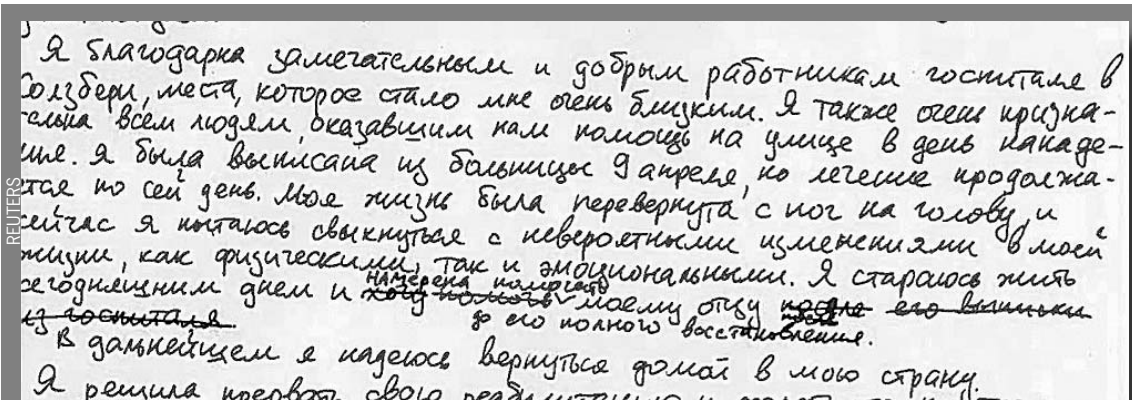 Я благодарна замечательным и добрым работникам госпиталя в
Солзбери, места, которое стало мне очень близким. Я также очень призна-
тельна всем людям, оказавшим нам помощь на улице в день нападе-
ния. Я была выписана из больницы 9 апреля, но лечение продолжа-
ется по сей день. Моя жизнь была перевернута с ног на голову, и
сейчас я пытаюсь свыкнуться с невероятными изменениями в моей
жизни, как физическими, так и эмоциональными. Я стараюсь жить
намерена помогать
сегодняшним днем и хочу помочь моему отцу после его выписки
из госпиталя
до его полного восстановления.
В дальнейшем я надеюсь вернуться домой в мою страну.
Я решила прервать свою
REUTERS